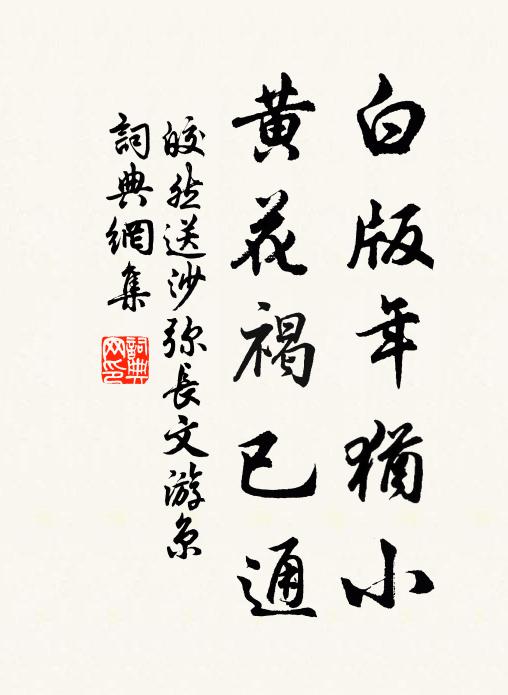 白版年猶小
黃花褐已通
皎然送沙弥長文游京
詞典網集
詞典
网印